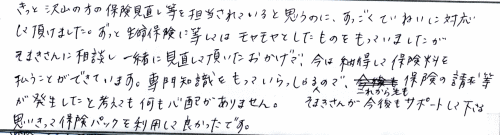 きっと沢山の方の保険見直し等を担当されていると思うのに、すっごくていねいに対応
して頂けました。ずっと生命保険に等してはモヤモヤとしたものをもっていましたが
さまきさんに相談し一緒に見直して頂いたおかげで、今は納得して保険料を
払うことができています。専門知識をもっていらっしゃる人で、これから先も保険の請求等
が発生したと考えても何も心配がありません。 さまきさんが今後もサポートして下さる
思いきって保険パックを利用して良かったです。